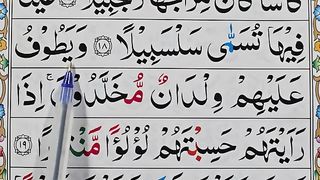 كَانَ مِزَاجُهَا زَنْجَبِيلًا ﴿١٧﴾ عَيْنًا
فِيهَا تُسَمّٰى سَلْسَبِيْلًا ﴿١٨﴾ وَيَطُوْفُ
عَلَيْهِمْ وِلْدَانٌ مُّخَلَّدُوْنَ ۚ اِذَا
رَاَيْتَهُمْ حَسِبْتَهُمْ لُؤْلُؤًا مَّنْثُوْرًا ﴿١٩﴾